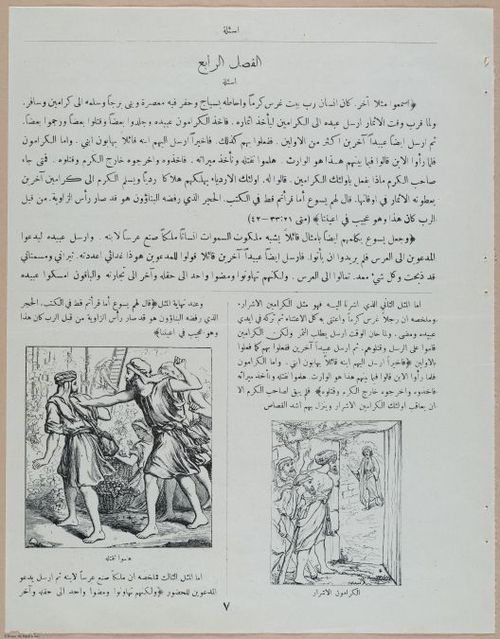 اسئلة
الفصل الرابع
اسئلة
﴿اسمعوا مثلا آخر. كان انسان رب بيت غرس كرماً واحاطه بسياج وحفر فيه معصرة وبنى برجاً وسلمه الى كرامين وسافر.
ولما قرب وقت الاثمار ارسل عبيده الى الكرامين ليأخذ اثماره. فاخذ الكرامون عبيده وجلدوا بعضاً وقتلوا بعضاً ورجموا بعضاً.
ثم ارسل ايضاً عبيداً آخرين اكثر من الاولين. ففعلوا بهم كذلك. فاخيراً ارسل اليهم ابنه قائلاً يهابون ابني. واما الكرامون
فلما رأوا الابن قالوا فيما بينهم هذا هو الوارث. هلموا نقتله ونأخذ ميراثه. فاخذوه واخرجوه خارج الكرم وقتلوه. فمتى جاء
صاحب الكرم ماذا يفعل باولئك الكرامين. قالوا له. اولئك الاردياء يهلكهم هلاكا ردياً ويسلم الكرم الى كرامين آخرين
يعطونه الاثمار في اوقاتها. قال لهم يسوع اما قرأتم قط في الكتب. الحجر الذي رفضه البناؤون هو قد صار رأس الزاوية. من قبل
الرب كان هذا وهو عجيب في اعيننا﴾ (متى ٢١:٣٣-٤٢)
﴿وجعل يسوع يكلمهم ايضاً بامثال قائلاً يشبه ملكوت السموات انساناً ملكاً صنع عرسا لابنه. وارسل عبيده ليدعوا
المدعوين الى العرس فلم يريدوا ان يأتوا. فارسل ايضاً عبيداً آخرين قائلا قولوا للمدعوين هوذا غدائي اعددته. ثيراني ومسمناتي
قد ذبحت وكل شيء معد. تعالوا الى العرس. ولكنهم تهاونوا ومضوا واحد الى حقله وآخر الى تجارته والباقون امسكوا عبيده
اما المثل الثاني الذي اشرنا اليه فهو مثل الكرامين الاشرار.
وملخصه ان رجلاً غرس كرماً واعتنى به كل الاعتناء ثم تركه في ايدي
عبيده ومضى. ولما حان الوقت ارسل يطلب الثمر ولكن الكرامين
قاموا على الرسل وقتلوهم. ثم ارسل عبيداً آخرين ففعلوا بهم كما فعلوا
بالاولين ﴿فاخيراً ارسل اليهم ابنه قائلاً يهابون ابني. واما الكرامون
فلما رأوا الابن قالوا فيما بينهم هذا هو الوارث. هلموا نقتله ونأخذ ميراثه
فاخذوه واخرجوه خارج الكرم وقتلوه﴾ فلم يبق لصاحب الكرم الا
ان يعاقب اولئك الكرامين الاشرار وينزل بهم اشد القصاص
الكرامون الاشرار
وعند نهاية المثل ﴿قال لهم يسوع أما قرأتم قط في الكتب. الحجر
الذي رفضه البناؤون هو قد صار رأس الزاوية من قبل الرب كان هذا
وهو عجيب في اعيننا﴾
هلموا نقتله
اما المثل الثالث فملخصه ان ملكا صنع عرساً لابنه ثم ارسل يدعو
المدعوين للحضور ﴿ولكنهم تهاونوا ومضوا واحد الى حقله وآخر
٧